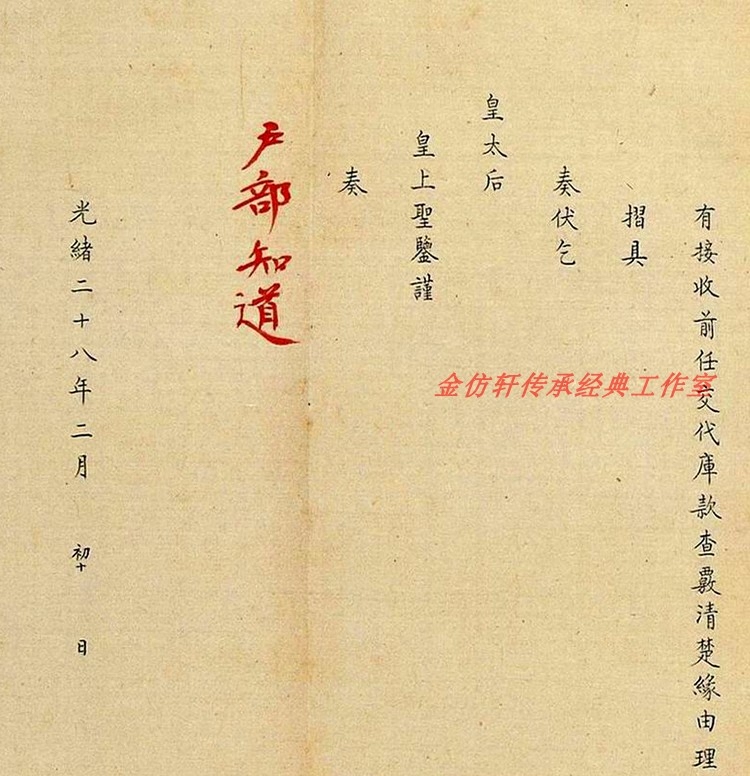 有接收前任交代庫款查覈清楚緣由理
摺具
奏伏乞
皇太后
皇上聖鑒謹
奏
戶部知道
光緒二十八年二月 初十 日
金仿轩传承经典工作室